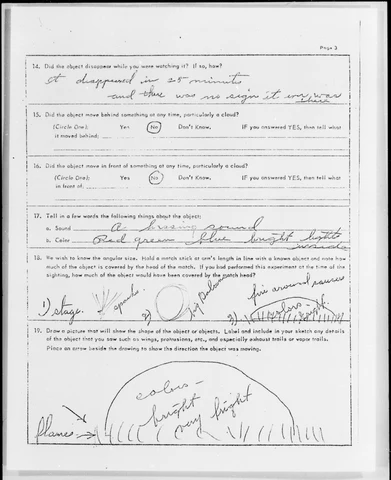 Page 3
14. Did the object disappear while you were watching it? If so, how?
It disappeared in 25 minute
and there was no sign it ever was
there
15. Did the object move behind something at any time, particularly a cloud?
(Circle One): Yes No Don't Know. IF you answered YES, then tell what
it moved behind:
16. Did the object move in front of something at any time, particularly a cloud?
(Circle One): Yes No Don't Know. IF you answered YES, then tell what
in front of:
17. Tell in a few words the following things about the object:
a. Sound A hissing sound
b. Color Red green blue bright lights
18. We wish to know the angular size. Hold a match stick at arm's length in line with a known object and note how
much of the object is covered by the head of the match. If you had performed this experiment at the time of the
sighting, how much of the object would have been covered by the match head?
1) stage.
2)
3)
fire around saucer
colors
bright
19. Draw a picture that will show the shape of the object or objects. Label and include in your sketch any details
of the object that you saw such as wings, protrusions, etc., and especially exhaust trails or vapor trails.
Place an arrow beside the drawing to show the direction the object was moving.
colors-
bright
very bright
flames